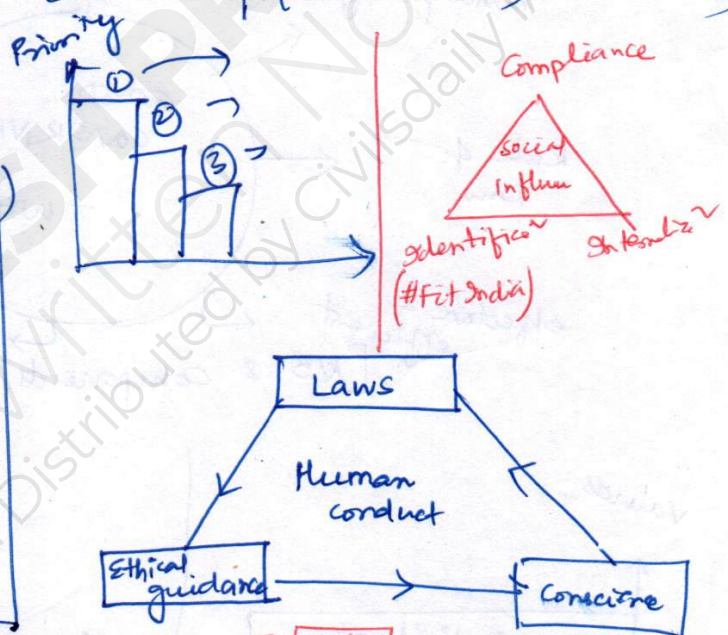 Priority
①
②
③
Compliance
social
influe
Identifica~
Internaliz~
(#Fit India)
Laws
Human
conduct
Ethical
guidance
Conscience
Distributed by Civilsdaily